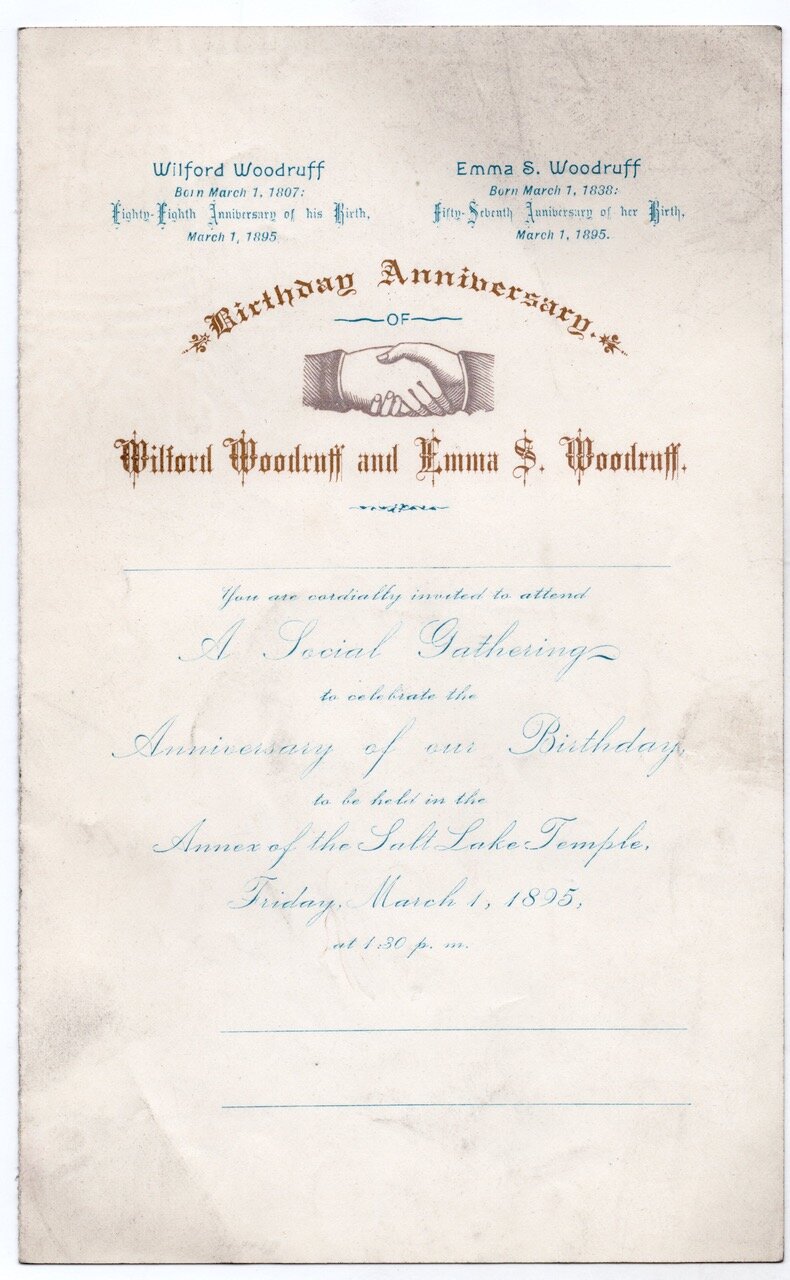 Wilford Woodruff
Born March 1, 1807:
Eighty-Eighth Anniversary of his Birth,
March 1, 1895
Emma S. Woodruff
Born March 1, 1838:
Fifty-Seventh Anniversary of her Birth,
March 1, 1895.
Birthday Anniversary.
OF
Wilford Woodruff and Emma S. Woodruff.
You are cordially invited to attend
A Social Gathering
to celebrate the
Anniversary of our Birthday,
to be held in the
Annex of the Salt Lake Temple,
Friday, March 1, 1895,
at 1:30 p. m.